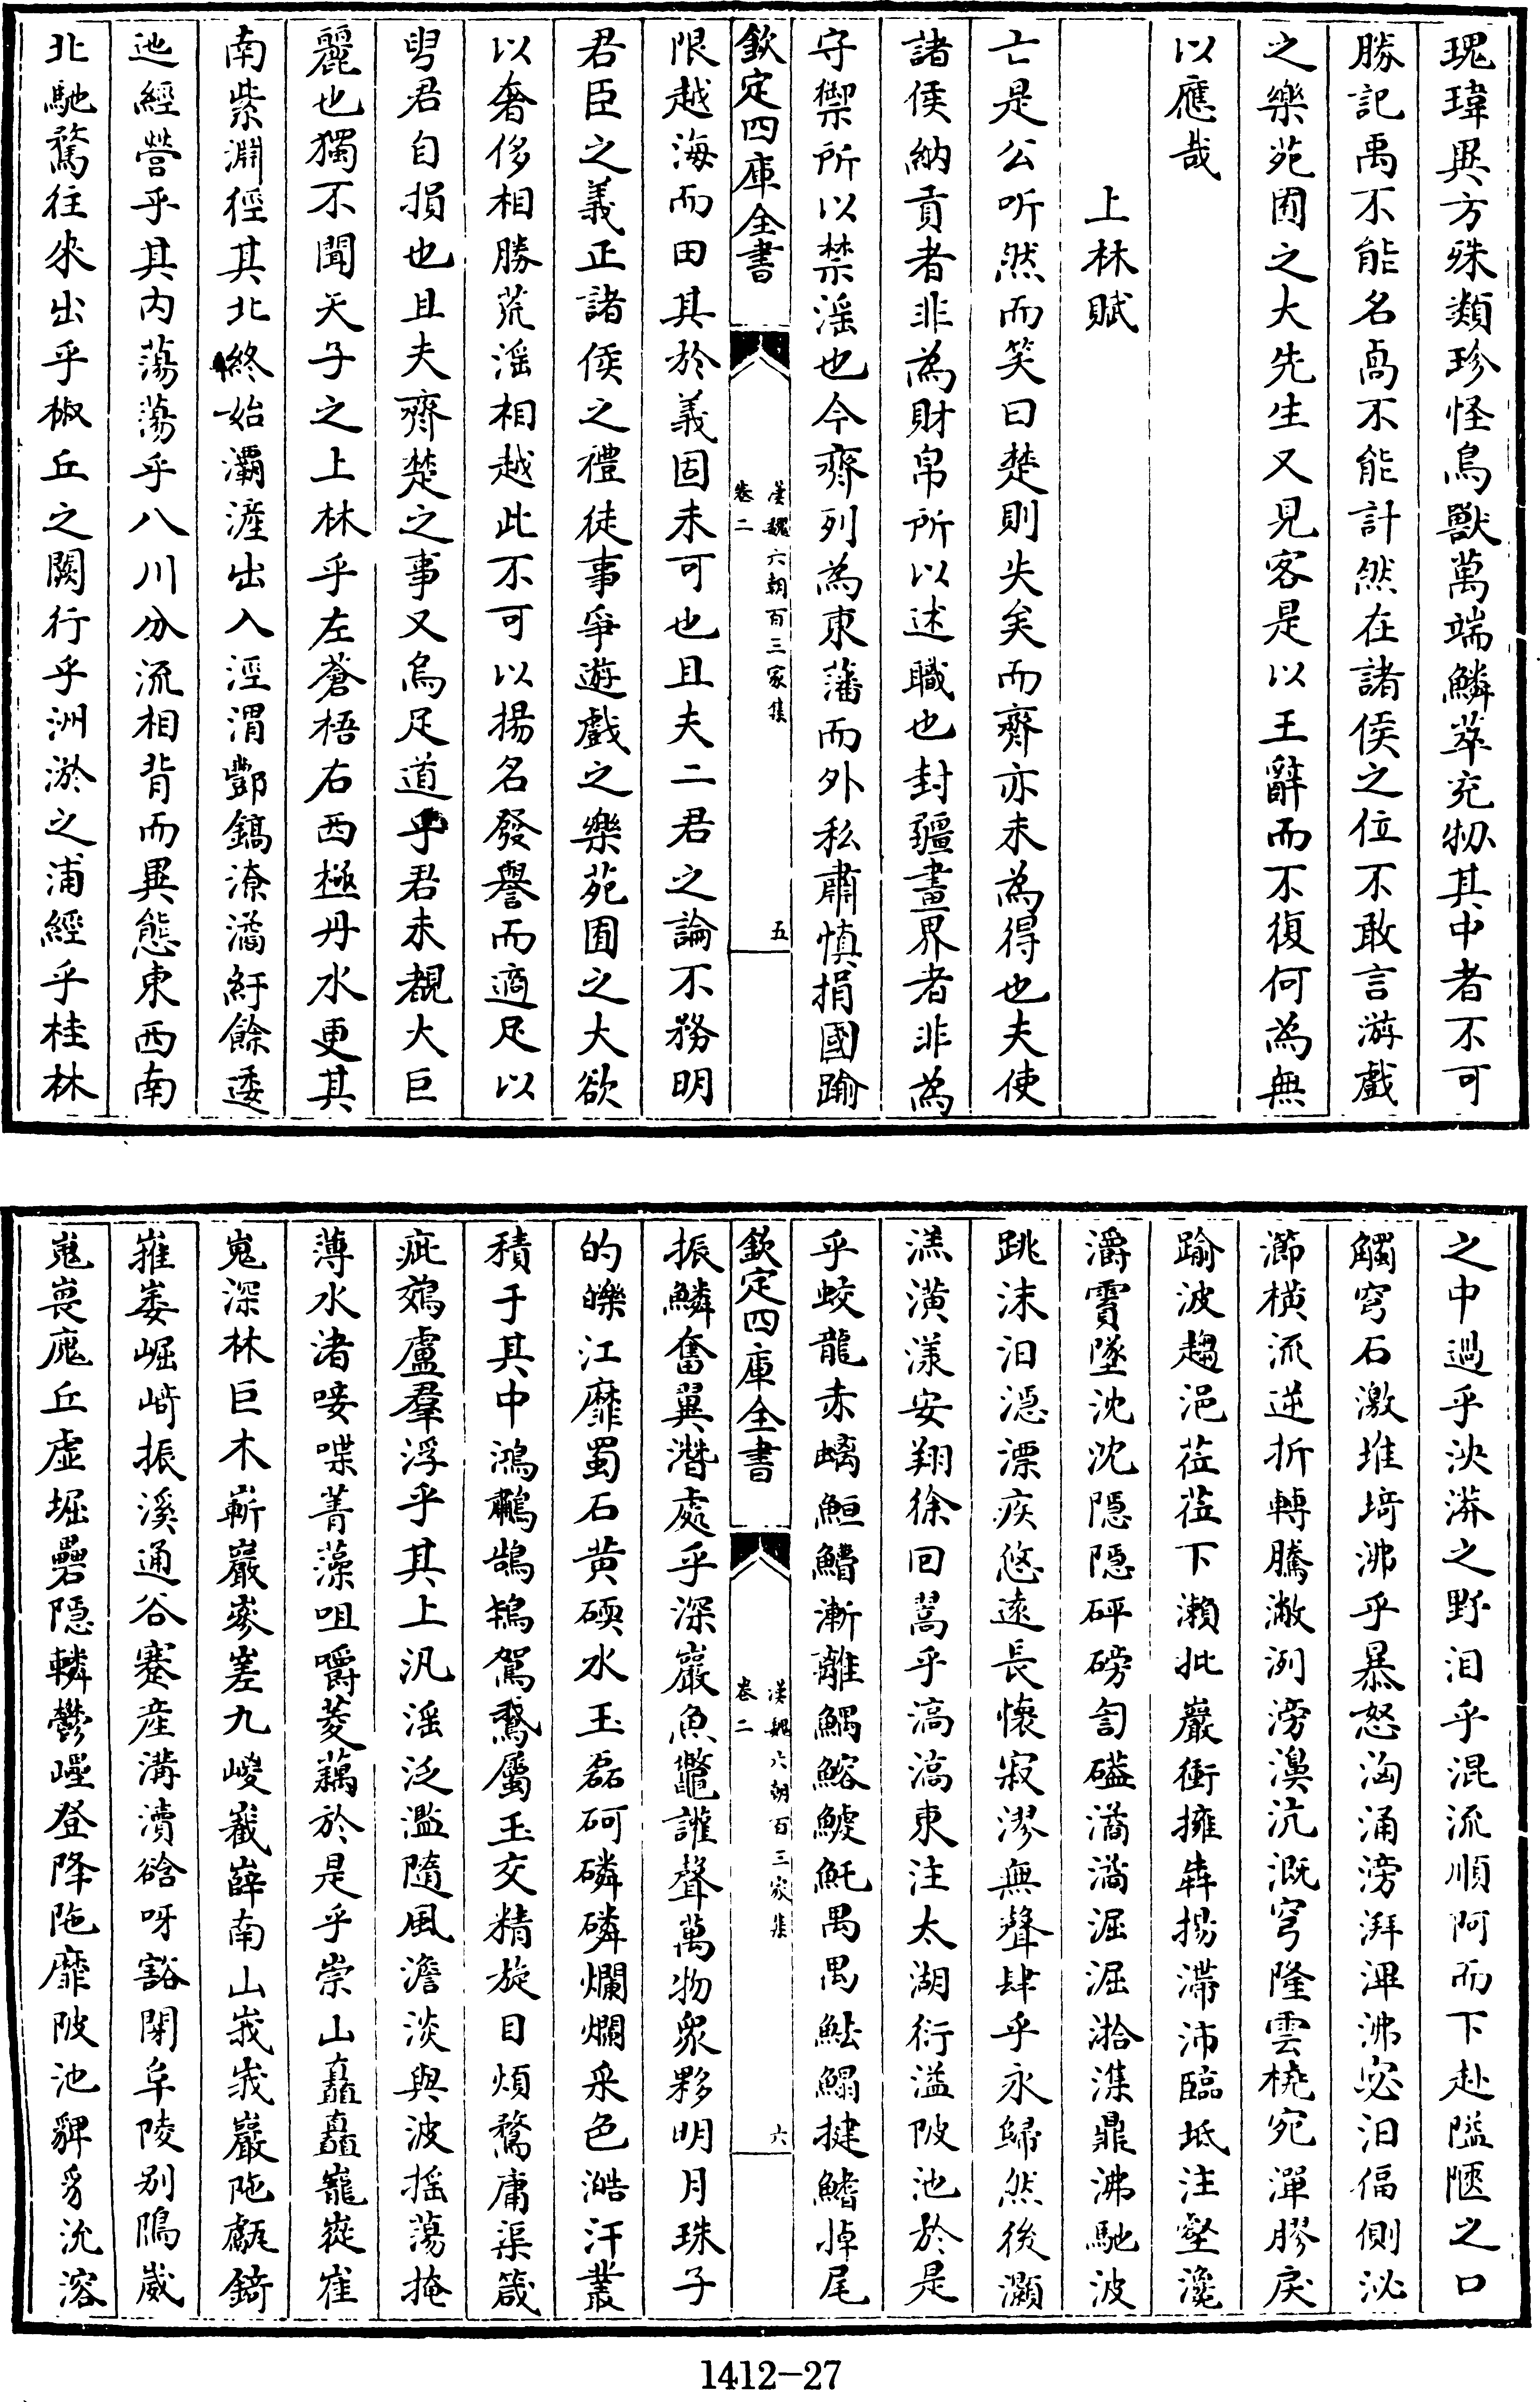 瑰瑋異方殊類珍怪鳥獸萬端鱗萃充牣其中者不可
勝記禹不能名卨不能計然在諸侯之位不敢言游戲
之樂苑囿之大先生又見客是以王辭而不復何為無
以應哉
上林賦
亡是公听然而笑曰楚則失矣而齊亦未為得也夫使
諸侯納貢者非為財帛所以述職也封疆畫界者非為
守禦所以禁淫也今齊列為東藩而外私肅慎捐國踰
欽定四庫全書
漢魏六朝百三家集
卷二
五
限越海而田其於義固未可也且夫二君之論不務明
君臣之義正諸侯之禮徒事爭遊戲之樂苑囿之大欲
以奢侈相勝荒淫相越此不可以揚名發譽而適足以
㝵君自損也且夫齊楚之事又烏足道乎君未覩大巨
麗也獨不聞天子之上林乎左蒼梧右西極丹水更其
南紫淵徑其北終始灞滻出入涇渭酆鎬潦潏紆餘逶
迆經營乎其内蕩蕩乎八川分流相背而異態東西南
北馳騖往來出乎椒丘之闕行乎洲淤之浦經乎桂林
之中過乎泱漭之野汩乎混流順阿而下赴隘陿之口
觸穹石激堆埼沸乎暴怒洶涌滂湃滭沸宓汩偪側泌
瀄橫流逆折轉騰潎洌滂濞沆溉穹隆雲橈宛潬膠戾
踰波趨浥莅莅下瀨批巖衝擁奔揚滯沛臨坻注壑瀺
灂霣墜沈沈隱隱砰磅訇礚潏潏淈淈湁潗鼎沸馳波
跳沫汩㶏漂疾悠遠長懷寂漻無聲肆乎永歸然後灝
溔潢漾安翔徐回翯乎滈滈東注太湖衍溢陂池於是
乎蛟龍赤螭䱎䲛漸離鰅鰫鰬魠禺禺魼鰨揵鰭掉尾
欽定四庫全書
漢魏六朝百三家集
卷二
六
振鱗奮翼潛處乎深巖魚鼈讙聲萬物衆夥明月珠子
的皪江靡蜀石黄碝水玉磊砢磷磷爛爛采色澔汗叢
積于其中鴻鷫鵠鴇鴐鵞屬玉交精旋目煩鶩庸渠箴
疵鵁盧羣浮乎其上汎淫泛濫隨風澹淡與波搖蕩掩
薄水渚唼喋菁藻咀嚼菱藕於是乎崇山矗矗巃嵸崔
嵬深林巨木嶄巖參嵳九嵕嶻嶭南山峩峩巖陁甗錡
嶊崣崛崎振溪通谷蹇產溝瀆谽呀豁閕阜陵别隝崴
嵬㟴廆丘虛堀礨隱轔鬱㠥登降陁靡陂池貏豸沇溶
1412-27